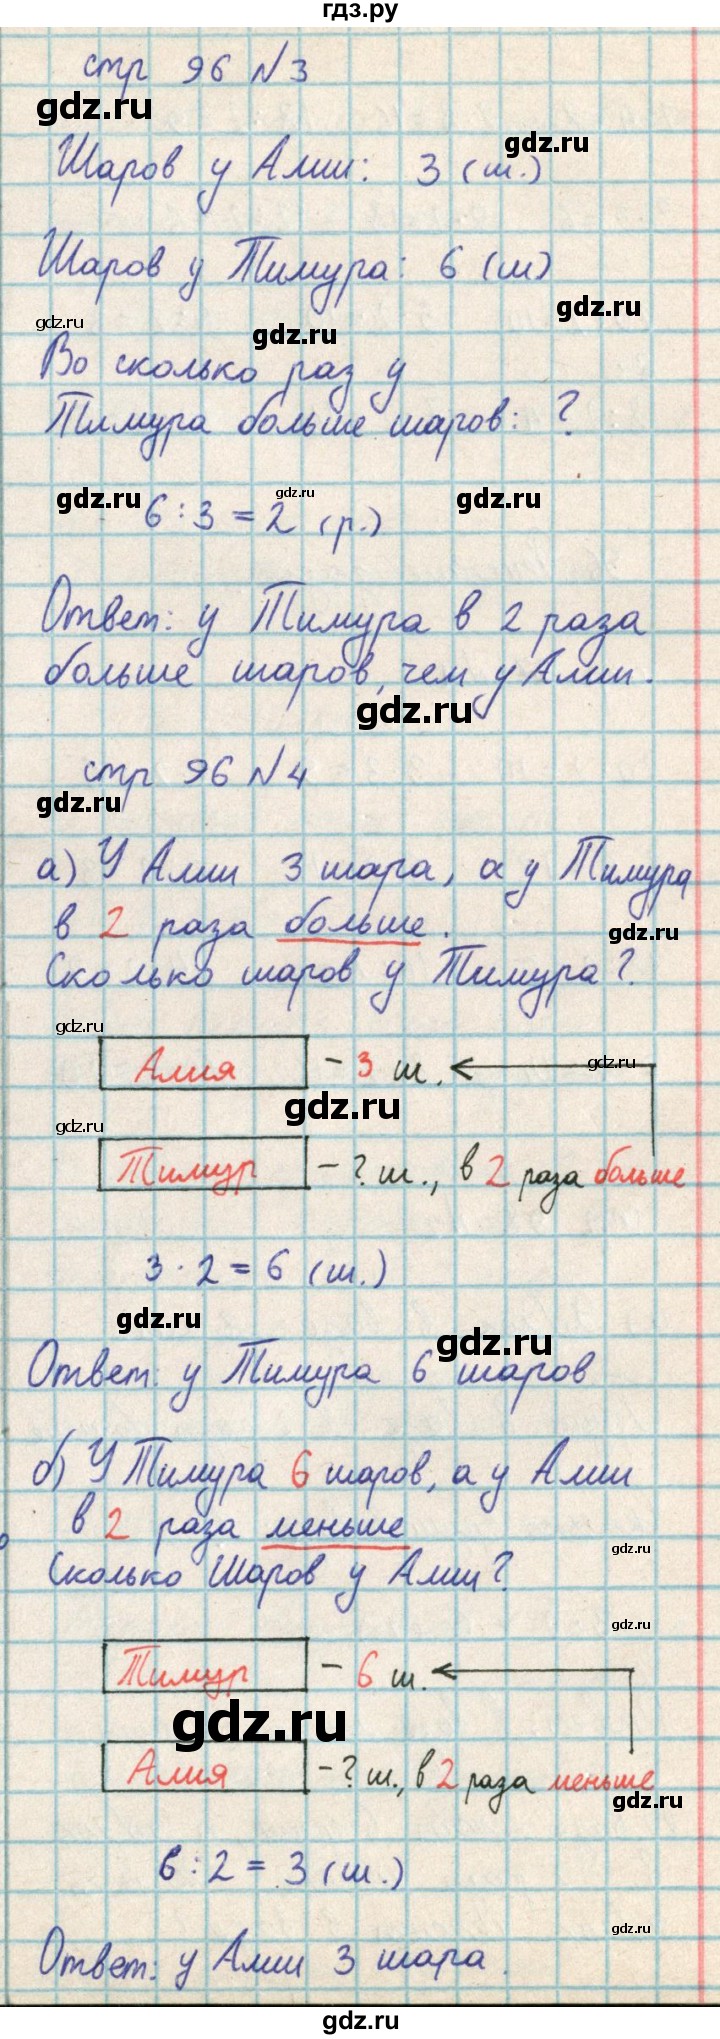 гдз.ру
стр 96 №3
gdz.ru
gdz.ru
Шаров у Алии: 3 (ш.)
Шаров у Тимура: 6 (ш)
gdz.ru
gdz.ru
gdz.ru
Во сколько раз у
Тимура больше шаров: ?
gdz.ru
gdz.ru
gdz.ru
6 : 3 = 2 (р.)
Ответ: у Тимура в 2 раза
больше шаров, чем у Алии.
gdz.ru
стр 96 №4
gdz.ru
а) У Алии 3 шара, а у Тимура
в 2 раза больше.
gdz.ru
Сколько шаров у Тимура?
gdz.ru
Алия - 3 ш.
gdz.ru
gdz.ru
gdz.ru
Тимур - ? ш., в 2 раза больше
3 · 2 = 6 (ш.)
gdz.ru
gdz.ru
Ответ: у Тимура 6 шаров
б) У Тимура 6 шаров, а у Алии
в 2 раза меньше
gdz.ru
Сколько шаров у Алии?
gdz.ru
Тимур - 6 ш.
gdz.ru
Алия - ? ш., в 2 раза меньше
gdz.ru
6 : 2 = 3 (ш.)
gdz.ru
Ответ: у Алии 3 шара.
gdz.ru